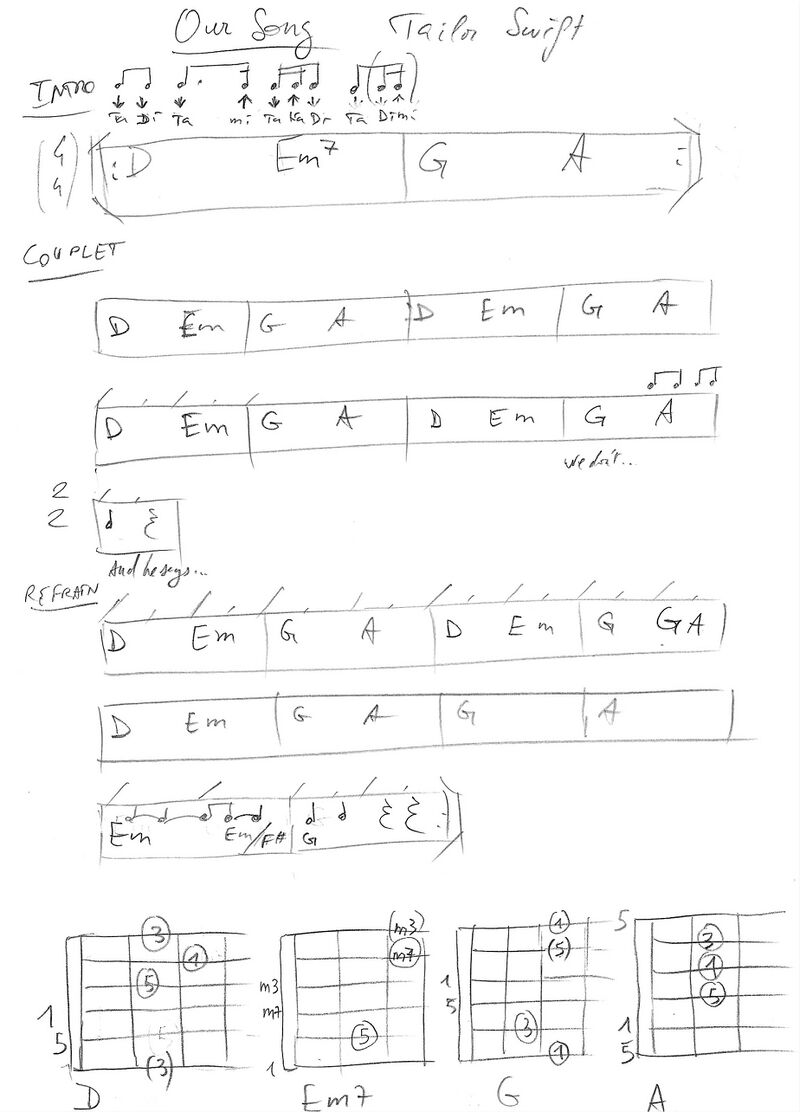 Our Song Tailor Swift
INTRO
Ta Di Ta mi Ta Ka Di Ta Di mi
4
4
D Em7 G A
COUPLET
D Em G A D Em G A
D Em G A D Em G A
we don't...
2
2
And he says...
REFRAIN
D Em G A D Em G G A
D Em G A G A
Em Em/F# G
3 (m3) 1 5
1 m7 (5) 3
5 m3 1 1
m7 5 5
1 5 5 3 1
(3) 1 1 5
D Em7 G A